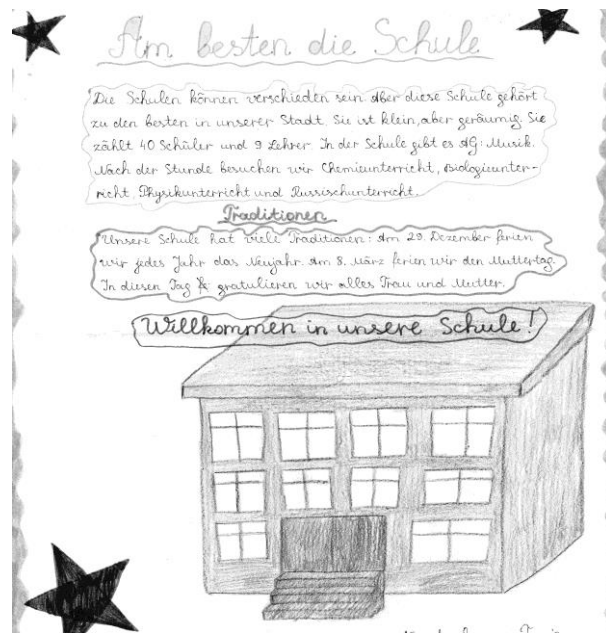 Am besten die Schule
Die Schulen können verschieden sein. Aber diese Schule gehört
zu den besten in unserer Stadt. Sie ist klein, aber geräumig. Sie
zählt 40 Schüler und 9 Lehrer. In der Schule gibt es AG: Musik.
Nach der Stunde besuchen wir Chemieunterricht, Biologieunter-
richt, Physikunterricht und Russischunterricht.
Traditionen
Unsere Schule hat viele Traditionen: Am 29. Dezember ferien
wir jedes Jahr das Neujahr. Am 8. März ferien wir den Muttertag.
In diesen Tag gratulieren wir alles Frau und Mutter.
Willkommen in unsere Schule!